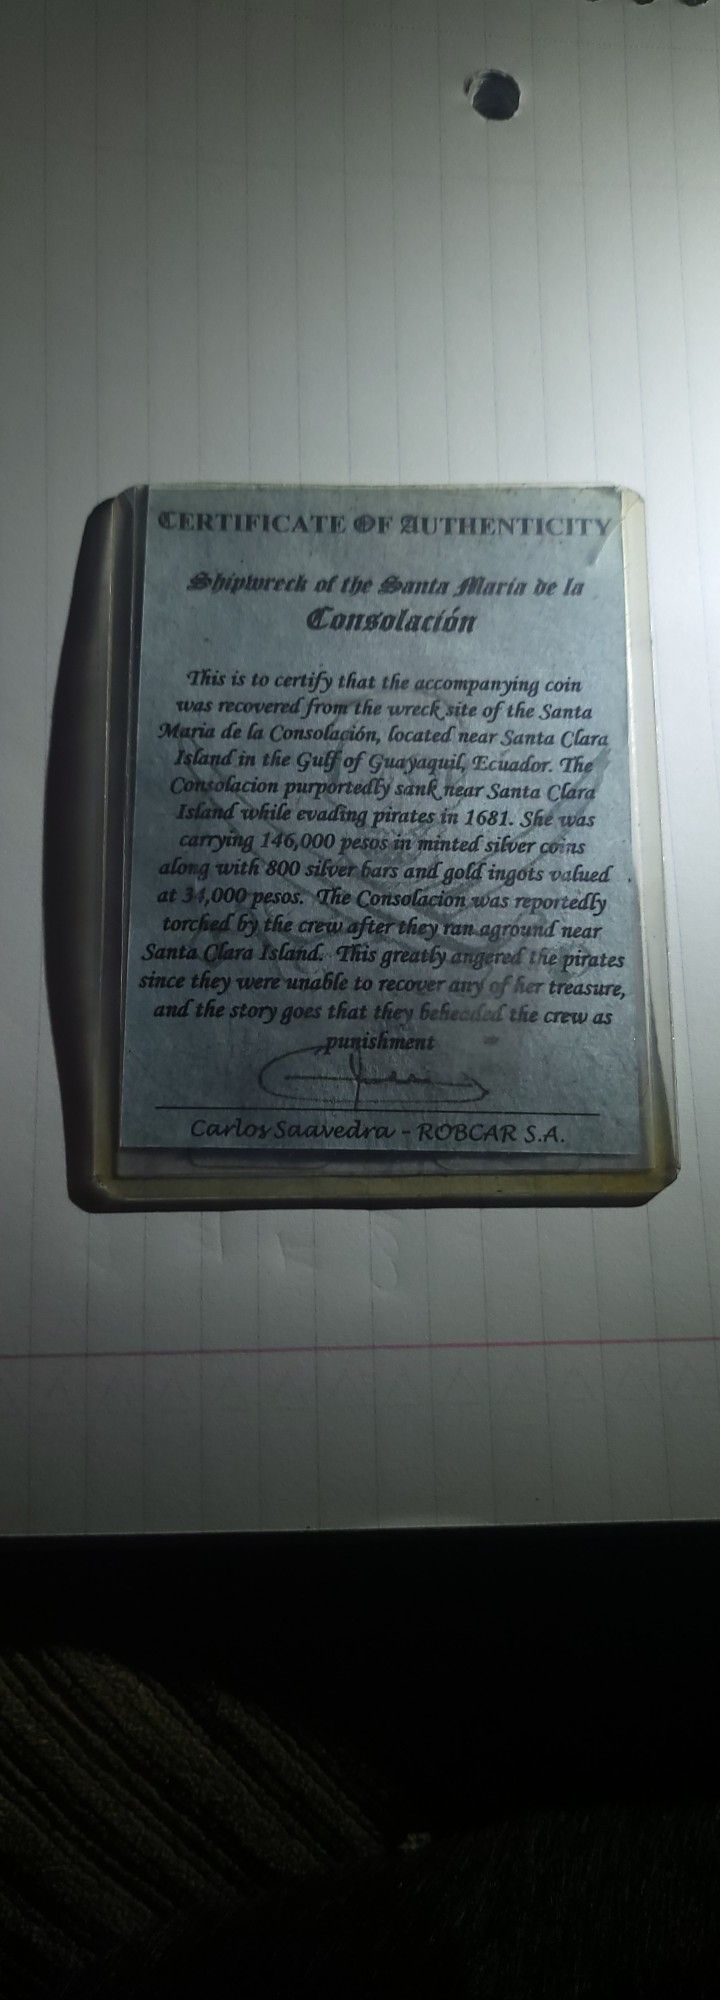 CERTIFICATE OF AUTHENTICITY
Shipwreck of the Santa Maria de la
Consolación
This is to certify that the accompanying coin
was recovered from the wreck site of the Santa
Maria de la Consolación, located near Santa Clara
Island in the Gulf of Guayaquil, Ecuador. The
Consolacion purportedly sank near Santa Clara
Island while evading pirates in 1681. She was
carrying 146,000 pesos in minted silver coins
along with 800 silver bars and gold ingots valued
at 34,000 pesos. The Consolacion was reportedly
torched by the crew after they ran aground near
Santa Clara Island. This greatly angered the pirates
since they were unable to recover any of her treasure,
and the story goes that they beheaded the crew as
punishment
Carlos Saavedra - ROBCAR S.A.